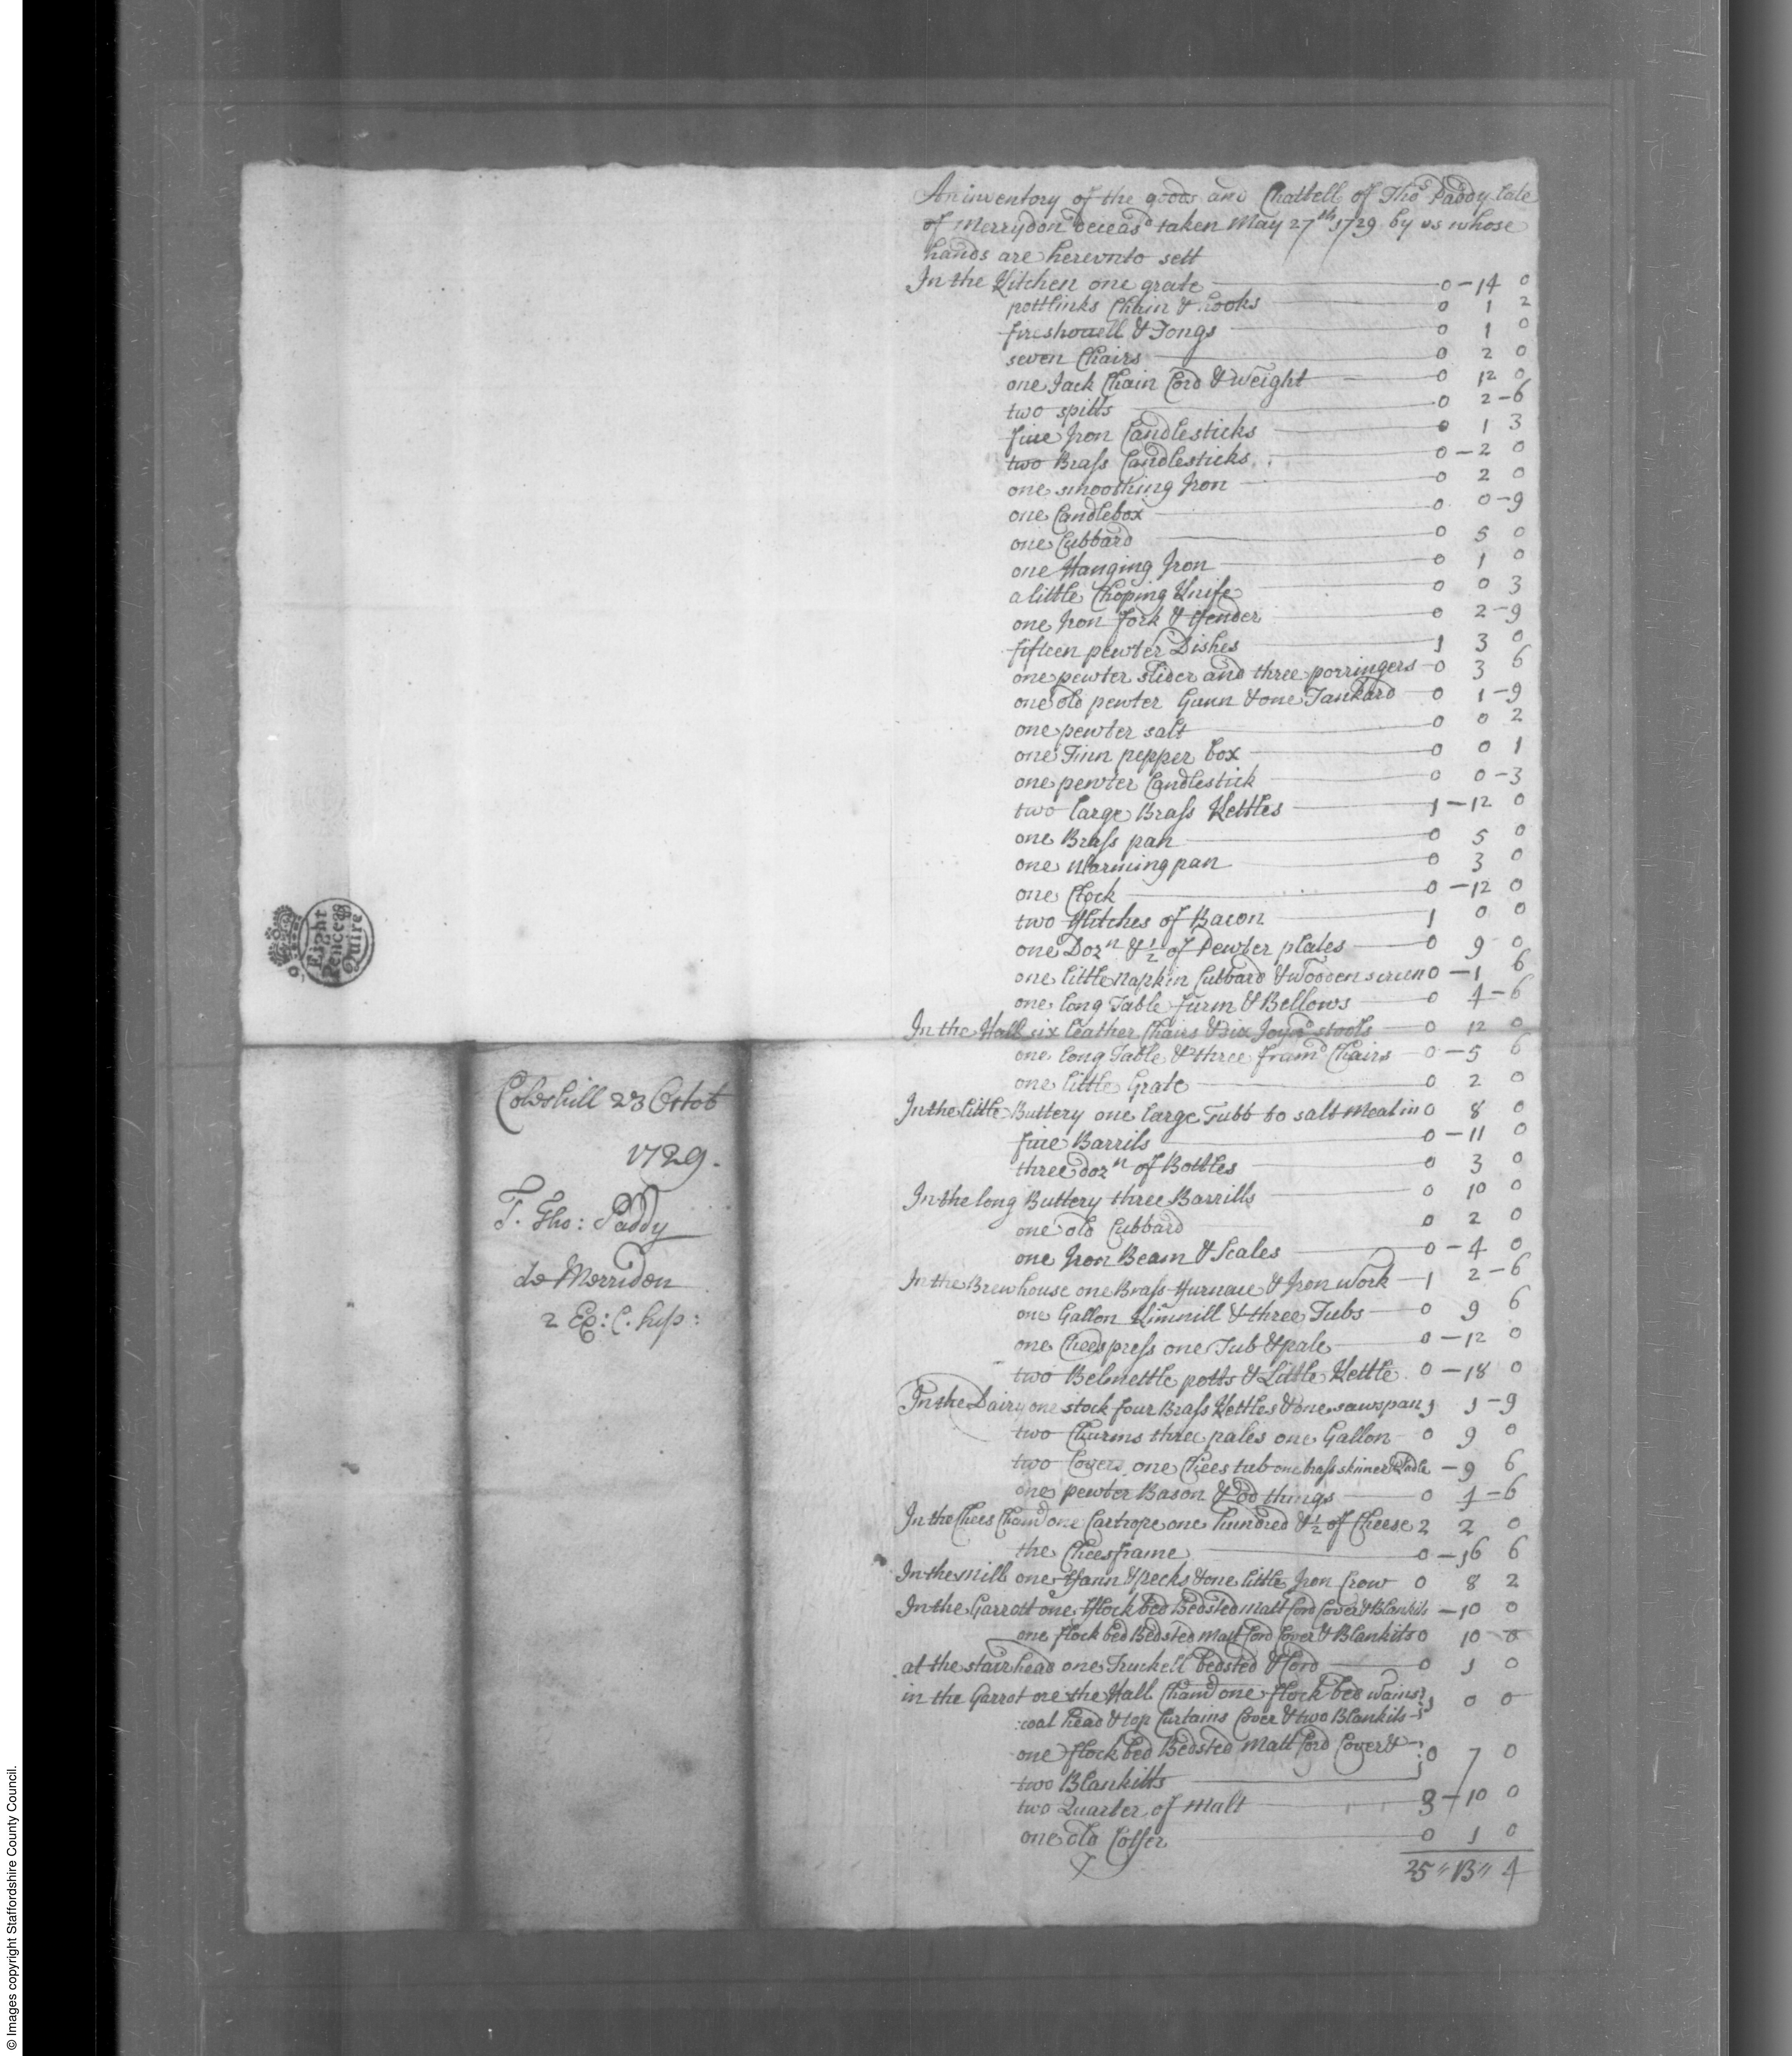 An inventory of the goods and Chattell of Thos Paddy late
of Merrydon Deceasd taken May 27th 1729 by us whose
hands are hereunto sett
In the Kitchen one grate 0 - 14 0
pottlinks Chain & hooks 0 1 2
fireshouell & Tongs 0 1 0
seven Chairs 0 2 0
one Jack Chain Cord & weight 0 12 0
two spitts 0 2 - 6
fiue Iron Candlesticks 0 1 3
two Brass Candlesticks 0 - 2 0
one smoothing Iron 0 2 0
one Candlebox 0 0 - 9
one Cubbard 0 5 0
one Hanging Iron 0 1 0
a little Choping Knife 0 0 3
one Iron fork & ffender 0 2 - 9
fifteen pewter Dishes 1 3 0
one pewter slider and three porringers 0 3 6
one old pewter Gunn & one Tankard 0 1 - 9
one pewter salt 0 0 2
one Tinn pepper box 0 0 1
one pewter Candlestick 0 0 - 3
two large Brass Kettles 1 - 12 0
one Brass pan 0 5 0
one Warming pan 0 3 0
one Clock 0 - 12 0
two fflitches of Bacon 1 0 0
one Dozn & 1/2 of Pewter plates 0 9 0
one little Napkin Cubbard & wooden screen 0 - 1 6
one long Table furm & Bellows 0 4 - 6
In the Hall six leather Chairs & six Joynd stools 0 12 0
one long Table & three framd Chairs 0 - 5 6
one little Grate 0 2 0
In the little Buttery one large Tubb to salt meat in 0 8 0
fiue Barrils 0 - 11 0
three dozn of Bottles 0 3 0
In the long Buttery three Barrills 0 10 0
one old Cubbard 0 2 0
one Iron Beam & Scales 0 - 4 0
In the Brewhouse one Brass ffurnace & Iron work 1 2 - 6
one Gallon Kimnill & three Tubs 0 9 6
one Cheespress one Tub & pale 0 - 12 0
two Belmettle potts & Little Kettle 0 - 18 0
In the Dairy one stock four Brass Kettles & one sawspan 1 1 - 9
two Churms three pales one Gallon 0 9 0
two Covers one Chees tub one brass skimer & Ladle - 9 6
one pewter Bason & od things 0 4 - 6
In the Chees Chamd one Cartrope one hundred & 1/2 of Cheese 2 2 0
the Cheesframe 0 - 16 6
In the mill one ffann & pecks & one little Iron Crow 0 8 2
In the Garratt one fflock bed Bedsted matt Cord Cover & Blankits - 10 0
one flock bed Bedsted matt Cord Cover & Blankits 0 10 0
at the stairhead one Truckell bedsted & Cord 0 1 0
in the Garrot ore the Hall Chamd one flock bed wains 1 0 0
:coat head & top Curtains Cover & two Blankits
one flock bed Bedsted Matt Cord Cover & 0 7 0
two Blankitts
two Quarter of Malt 3 - 10 0
one old Coffer 0 1 0
25 " 13 " 4
Eight
Pence a
Quire
Coleshill 23 Octob
1729.
T. Tho: Paddy
de Merriden
2 Ex:
© Images copyright Staffordshire County Council.